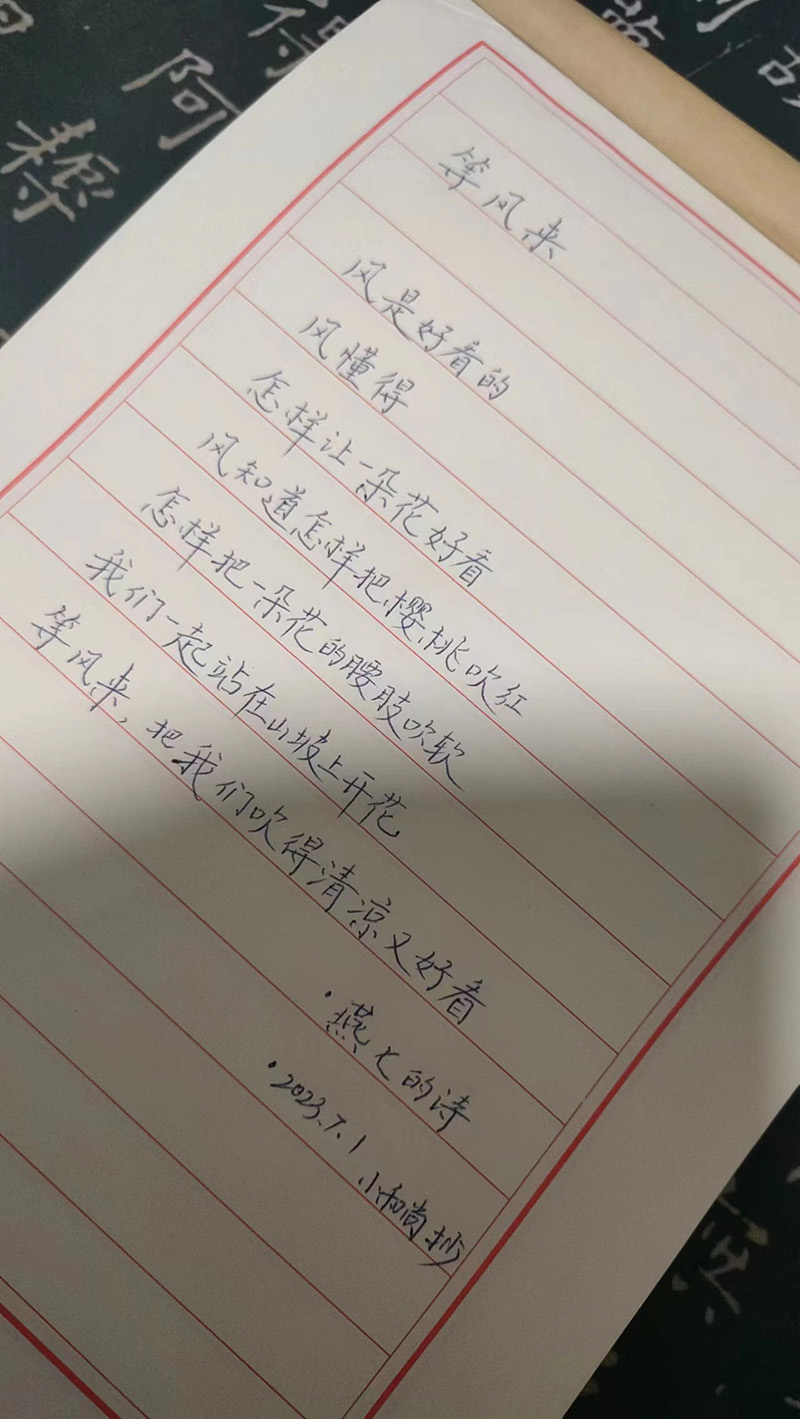 等风来
风是好看的
风懂得
怎样让一朵花好看
风知道怎样把樱桃吹红
怎样把一朵花的腰肢吹软
我们一起站在山坡上开花
等风来，把我们吹得清凉又好看
·燕七的诗
·2023.7.1
小和尚抄
得
阿